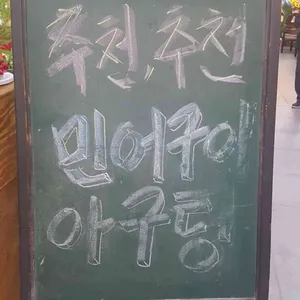 추천, 추천
민어구이
아구탕